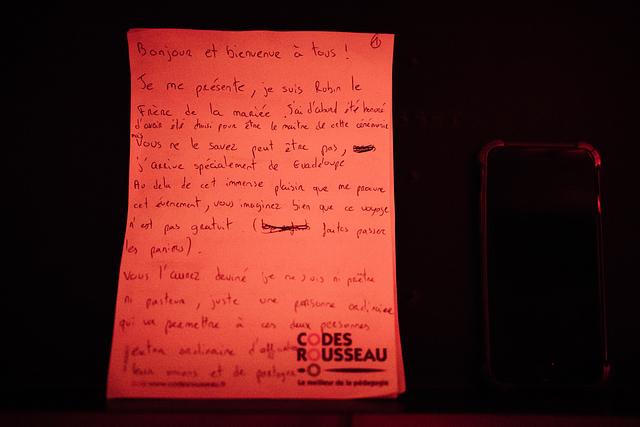 1
Bonjour et bienvenue à tous !
Je me présente, je suis Robin le
Frère de la mariée. J'ai d'abord été honoré
d'avoir été choisi pour être le maître de cette cérémonie
mais
Vous ne le savez peut être pas,
j'arrive spécialement de Guadeloupe
Au delà de cet immense plaisir que me procure
cet évènement, vous imaginez bien que ce voyage
n'est pas gratuit. ( faites passer
les paniers).
Vous l'aurez deviné je ne suis ni prêtre
ni pasteur, juste une personne ordinaire
qui va permettre à ces deux personnes
extra ordinaire
leurs et de partager
CODES
ROUSSEAU
Le meilleur de la pédagogie
www.codesrousseau.fr